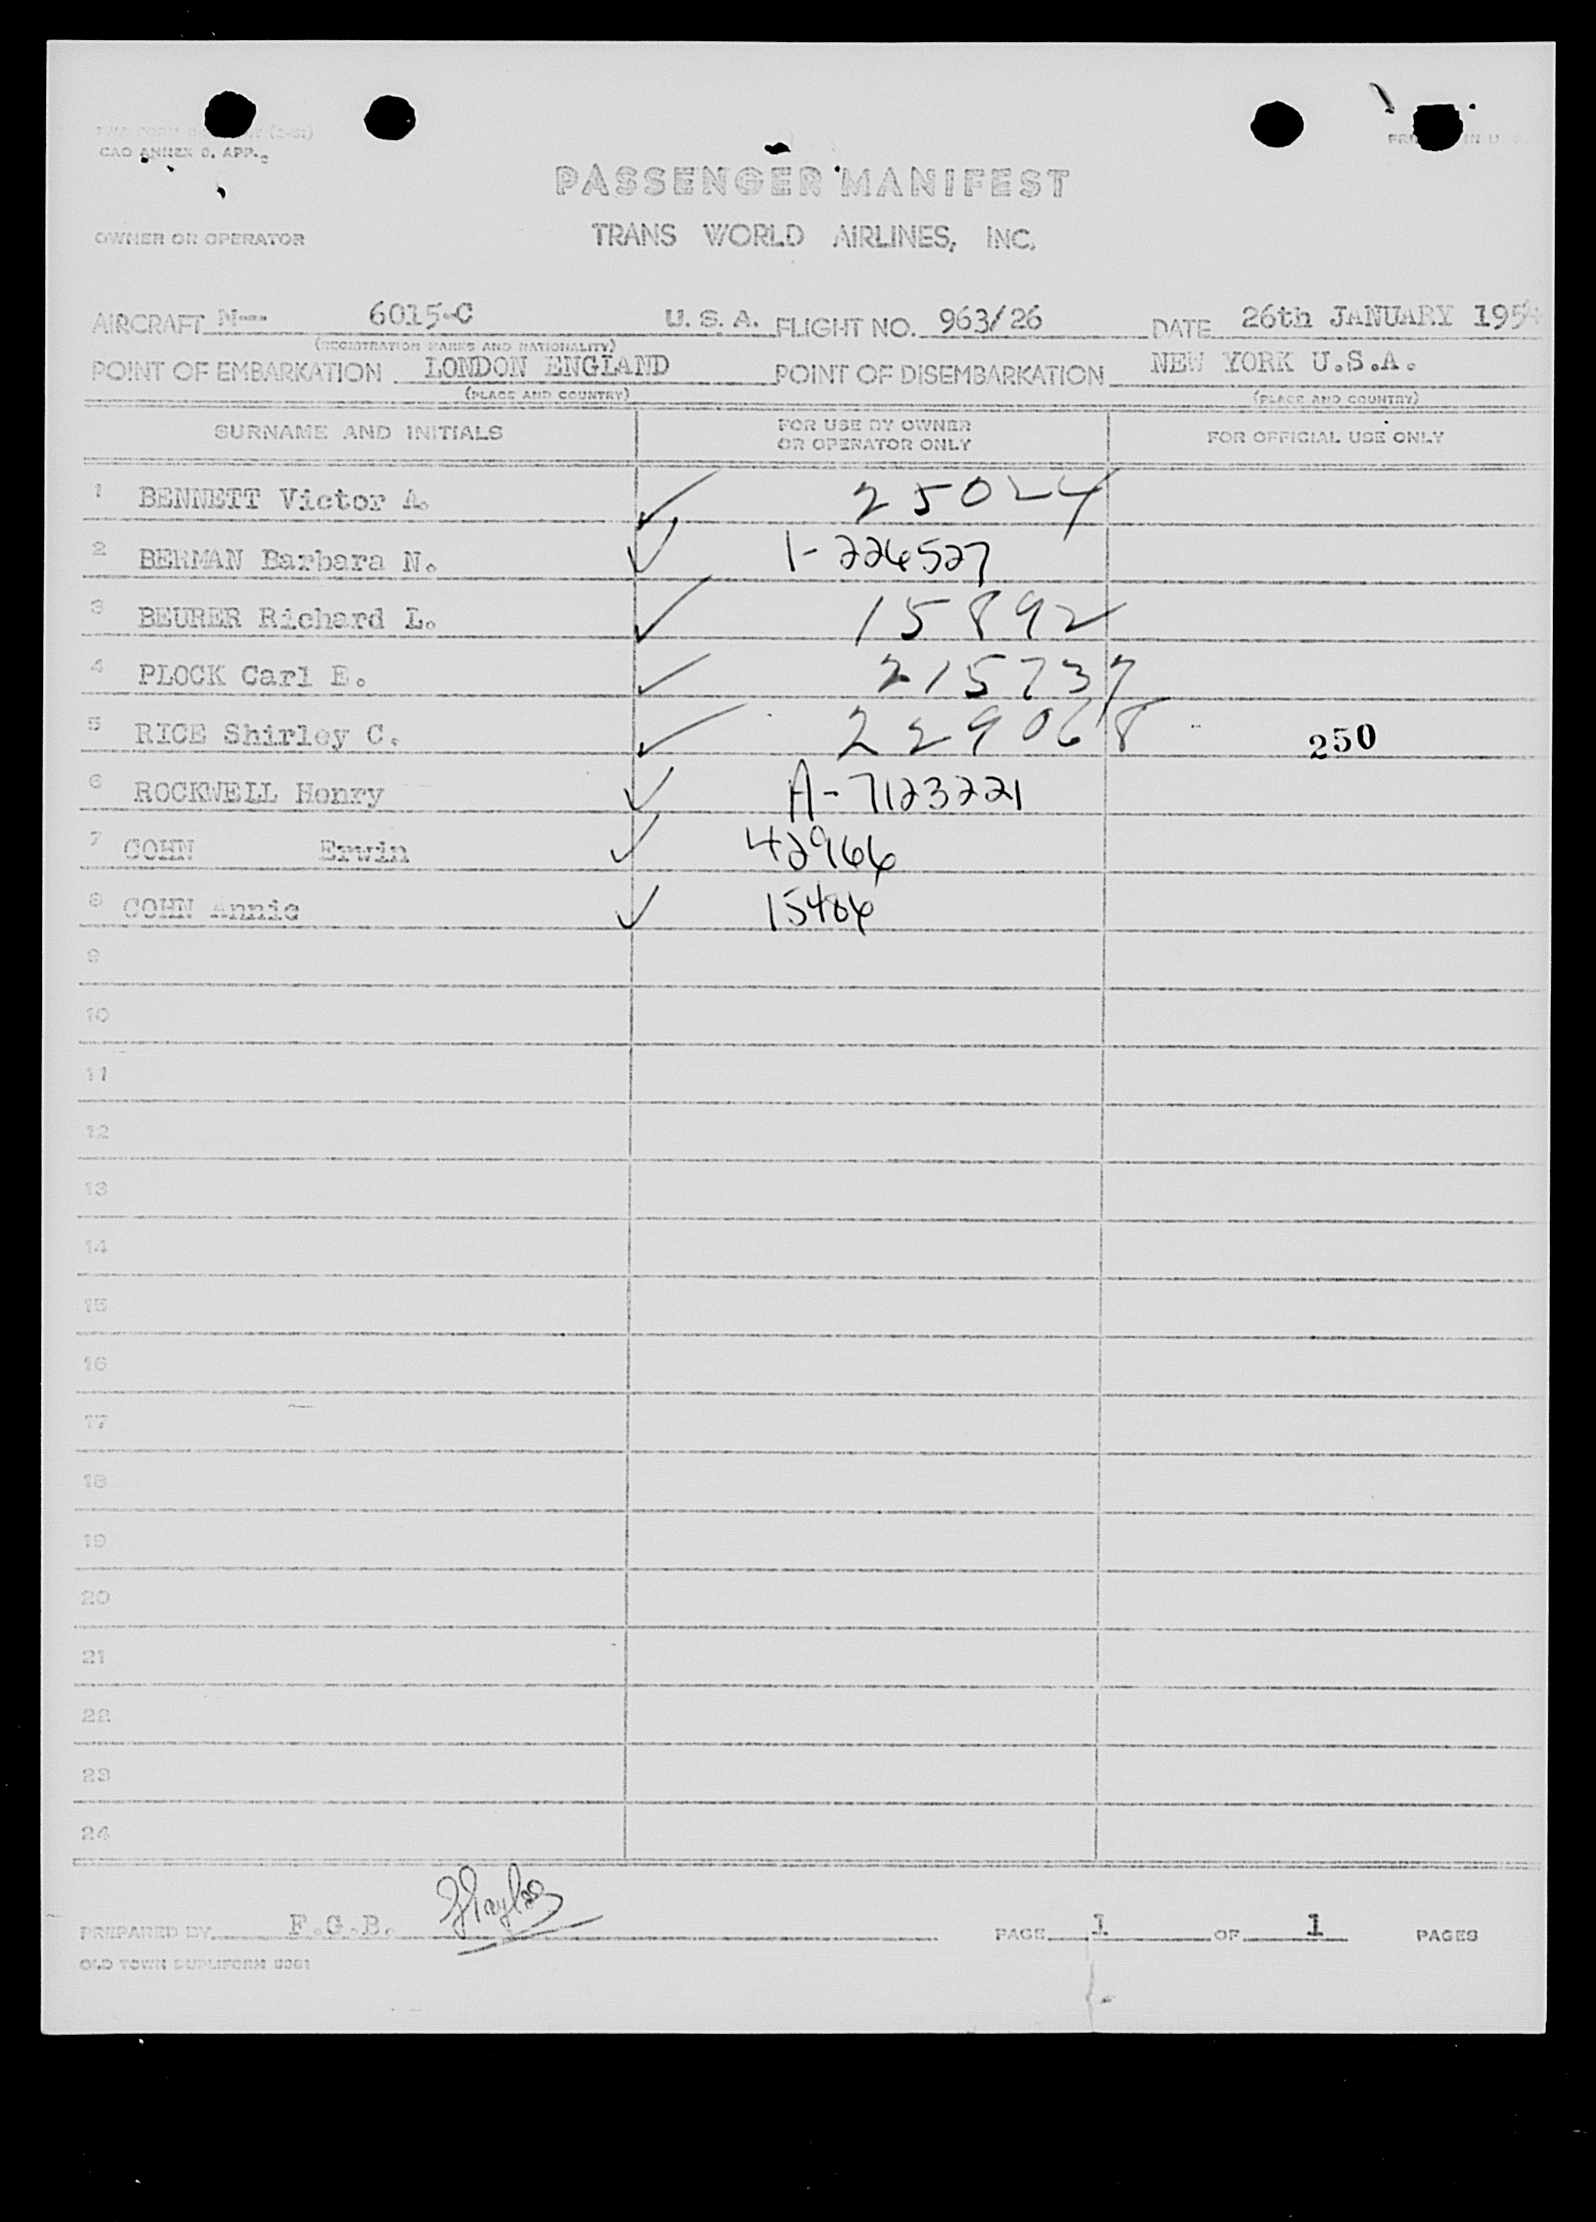 CAO ANNEX 9, APP.
PASSENGER MANIFEST
OWNER OR OPERATOR TRANS WORLD AIRLINES, INC.
AIRCRAFT N-- 6015-C U. S. A. FLIGHT NO. 963/26 DATE 26th JANUARY 195
(REGISTRATION MARKS AND NATIONALITY)
POINT OF EMBARKATION LONDON ENGLAND POINT OF DISEMBARKATION NEW YORK U.S.A.
(PLACE AND COUNTRY) (PLACE AND COUNTRY)
SURNAME AND INITIALS FOR USE BY OWNER OR OPERATOR ONLY FOR OFFICIAL USE ONLY
1 BENNETT Victor A. ✓ 25024
2 BERMAN Barbara N. ✓ 1-226527
3 BEURER Richard L. ✓ 15892
4 PLOCK Carl E. ✓ 215737
5 RICE Shirley C. ✓ 229068 250
6 ROCKWELL Henry ✓ A-7123221
7 COHN Erwin ✓ 42966
8 COHN Annie ✓ 15486
9
10
11
12
13
14
15
16
17
18
19
20
21
22
23
24
PREPARED BY F.G.B. PAGE 1 OF 1 PAGES
OLD TOWN DUPLIFORM